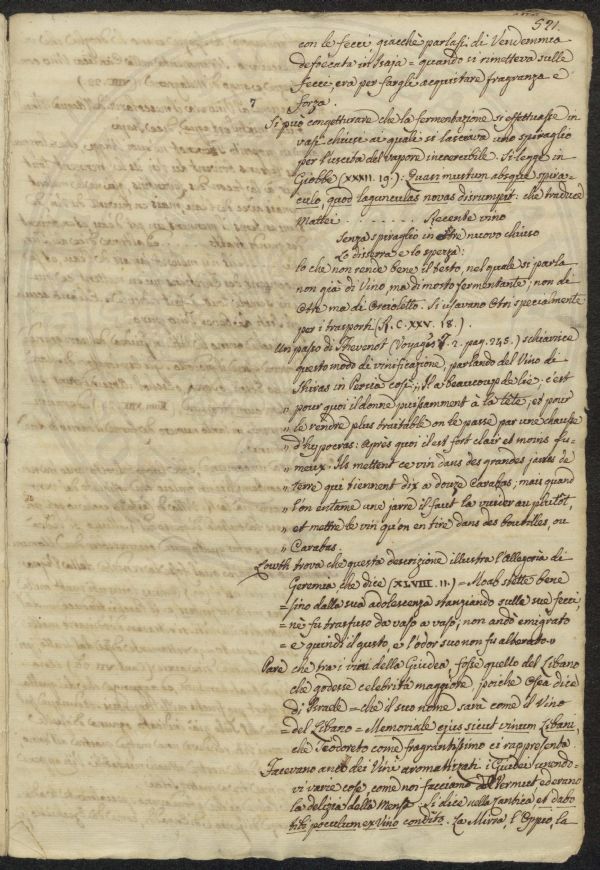 521.
con le fecci, giacchè parlasi di Vendemmia
defecata in Isaja = quando si rimetteva sulle
fecci, era per fargli acquistare fragranza e
forza.
7
Si può congetturare che la fermentazione si effettuasse in
vasi chiusi ai quali si lasciava uno spiraglio
per l'uscita del vapore increscibile. Si legge in
Giobbe (XXXII. 19.): Quasi mustum absque spira-
culo, quod lagunculas novas disrumpit: che traduce
Mattei . . . . . . . . Recente vino
Senza spiraglio in Otre nuovo chiuso
Lo disserra e lo spezza:
lo che non rende bene il testo, nel quale si parla
non già di Vino, ma di mosto fermentante; non di
Otre ma di Orcioletto. Si usavano Otri specialmente
per i trasporti (R. C. XXV. 18.).
Un passo di Thevenot (Voyages T. 2. pag. 245.) schiarisce
questo modo di vinificazione, parlando del Vino di
Shiras in Persia così „ Il a beaucoup de lie; c'est
„ pour quoi il donne puissamment à la tête; et pour
„ le rendre plus traitable on le passe par une chausse
„ d'hypocras: après quoi il est fort clair et moins fu-
„ meux. Ils mettent ce vin dans des grandes jarres de
„ terre qui tiennent dix a douze Carabas; mais quand
„ l'on entame une jarre il faut la vuider au plutôt,
„ et mettre le vin qu'on en tire dans des bouteilles, ou
„ Carabas.
Lowth trova che questa descrizione illustra l'Allegoria di
Geremia che dice (XLVIII. 11.) = Moab stette bene
= sino dalla sua adolescenza stanziando sulle sue fecci,
= nè fu trasfuso da vaso a vaso, non andò emigrato
= e quindi il gusto, e l'odor suo non fu alterato.
Pare che tra i vini della Giudea, fosse quello del Libano
che godesse celebrità maggiore, poichè Osea dice
di Israele = che il suo nome sarà come il Vino
= del Libano = Memoriale ejus sicut vinum Libani,
che Teodoreto come fragrantissimo ci rappresenta.
Facevano anco dei Vini aromatizati i Giudei
vi varie cose, come noi facciamo del Vermut ed erano
la delizia della mensa. Si dice nella Cantica, et dabo
tibi poculum ex Vino condito. La Mirra, l'Oppio, la